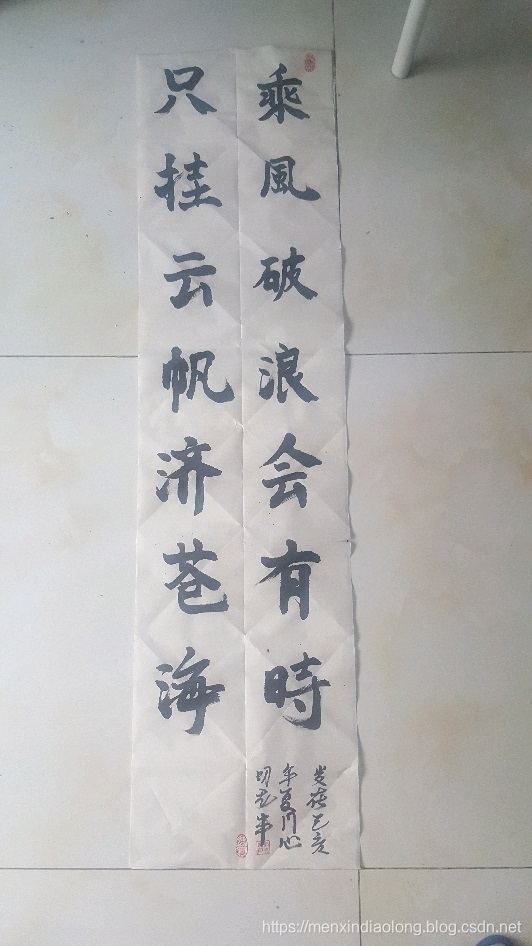 乘風破浪会有時
只挂云帆济苍海
岁在己亥
年夏门心
https://menxindiaolong.blog.csdn.net